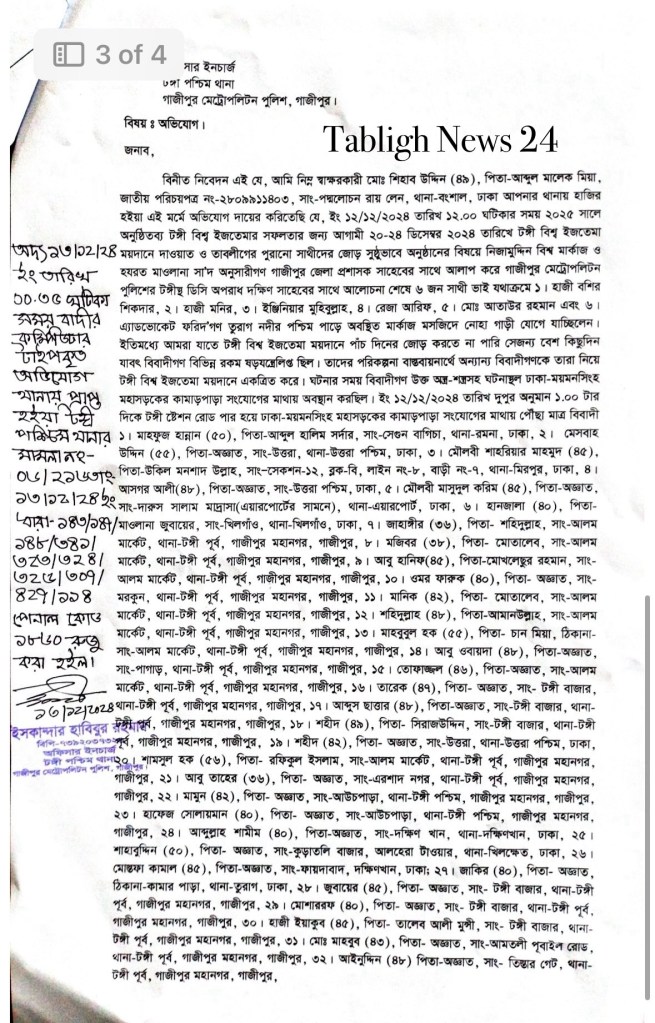 3 of 4
সার ইনচার্জ
টঙ্গী পশ্চিম থানা
গাজীপুর মেট্রোপলিটন পুলিশ, গাজীপুর।
বিষয় ঃ অভিযোগ।
Tabligh News 24
জনাব,
বিনীত নিবেদন এই যে, আমি নিম্ন স্বাক্ষরকারী মোঃ শিহাব উদ্দিন (৪৯), পিতা-আব্দুল মালেক মিয়া,
জাতীয় পরিচয়পত্র নং-২৮০৯৯১১৪০৩, সাং-পদ্মলোচন রায় লেন, থানা-বংশাল, ঢাকা আপনার থানায় হাজির
হইয়া এই মর্মে অভিযোগ দায়ের করিতেছি যে, ইং ১২/১২/২০২৪ তারিখ ১২.০০ ঘটিকার সময় ২০২৫ সালে
অনুষ্ঠিতব্য টঙ্গী বিশ্ব ইজতেমার সফলতার জন্য আগামী ২০-২৪ ডিসেম্বর ২০২৪ তারিখে টঙ্গী বিশ্ব ইজতেমা
ময়দানে দাওয়াত ও তাবলীগের পুরানো সাথীদের জোড় সুষ্ঠুভাবে অনুষ্ঠানের বিষয়ে নিজামুদ্দিন বিশ্ব মার্কাজ ও
হযরত মাওলানা সা'দ অনুসারীগণ গাজীপুর জেলা প্রশাসক সাহেবের সাথে আলাপ করে গাজীপুর মেট্রোপলিটন
পুলিশের টঙ্গীস্থ ডিসি অপরাধ দক্ষিণ সাহেবের সাথে আলোচনা শেষে ৬ জন সাথী ভাই যথাক্রমে ১। হাজী বশির
শিকদার, ২। হাজী মনির, ৩। ইঞ্জিনিয়ার মুহিবুল্লাহ, ৪। রেজা আরিফ, ৫। মোঃ আতাউর রহমান এবং ৬।
এ্যাডভোকেট ফরিদ'গণ তুরাগ নদীর পশ্চিম পাড়ে অবস্থিত মার্কাজ মসজিদে নোহা গাড়ী যোগে যাচ্ছিলেন।
ইতিমধ্যে আমরা যাতে টঙ্গী বিশ্ব ইজতেমা ময়দানে পাঁচ দিনের জোড় করতে না পারি সেজন্য বেশ কিছুদিন
যাবৎ বিবাদীগণ বিভিন্ন রকম ষড়যন্ত্রেলিপ্ত ছিল। তাদের পরিকল্পনা বাস্তবায়নার্থে অন্যান্য বিবাদীগণকে তারা নিয়ে
টঙ্গী বিশ্ব ইজতেমা ময়দানে একত্রিত করে। ঘটনার সময় বিবাদীগণ উক্ত অস্ত্র-শস্ত্রসহ ঘটনাস্থল ঢাকা-ময়মনসিংহ
মহাসড়কের কামাড়পাড়া সংযোগের মাথায় অবস্থান করছিল। ইং ১২/১২/২০২৪ তারিখ দুপুর অনুমান ১.০০ টার
দিকে টঙ্গী ষ্টেশন রোড পার হয়ে ঢাকা-ময়মনসিংহ মহাসড়কের কামাড়পাড়া সংযোগের মাথায় পৌঁছা মাত্র বিবাদী
১। মাহফুজ হান্নান (৫০), পিতা-আব্দুল হালিম সর্দার, সাং-সেগুন বাগিচা, থানা-রমনা, ঢাকা, ২। মেসবাহ
উদ্দিন (৫৫), পিতা-অজ্ঞাত, সাং-উত্তরা, থানা-উত্তরা পশ্চিম, ঢাকা, ৩। মৌলবী শাহরিয়ার মাহমুদ (৪৫),
পিতা-উকিল মনশাদ উল্লাহ, সাং-সেকশন-১২, ব্লক-বি, লাইন নং-৮, বাড়ী নং-৭, থানা-মিরপুর, ঢাকা, ৪।
আসগর আলী(৪৮), পিতা-অজ্ঞাত, সাং-উত্তরা পশ্চিম, ঢাকা, ৫। মৌলবী মাসুদুল করিম (৪৫), পিতা-অজ্ঞাত,
সাং-দারুস সালাম মাদ্রাসা(এয়ারপোর্টের সামনে), থানা-এয়ারপোর্ট, ঢাকা, ৬। হানজালা (৪০), পিতা-
মাওলানা জুবায়ের, সাং-খিলগাঁও, থানা-খিলগাঁও, ঢাকা, ৭। জাহাঙ্গীর (৩৬), পিতা- শহিদুল্লাহ, সাং-আলম
মার্কেট, থানা-টঙ্গী পূর্ব, গাজীপুর মহানগর, গাজীপুর, ৮। মজিবর (৩৮), পিতা- মোতালেব, সাং-আলম
মার্কেট, থানা-টঙ্গী পূর্ব, গাজীপুর মহানগর, গাজীপুর, ৯। আবু হানিফ(৪৫), পিতা-মোখলেছুর রহমান, সাং-
আলম মার্কেট, থানা-টঙ্গী পূর্ব, গাজীপুর মহানগর, গাজীপুর, ১০। ওমর ফারুক (৪০), পিতা- অজ্ঞাত, সাং-
মরকুন, থানা-টঙ্গী পূর্ব, গাজীপুর মহানগর, গাজীপুর, ১১। মানিক (৪২), পিতা- মোতালেব, সাং-আলম
মার্কেট, থানা-টঙ্গী পূর্ব, গাজীপুর মহানগর, গাজীপুর, ১২। শহিদুল্লাহ (৪৮), পিতা-আমানউল্লাহ, সাং-আলম
মার্কেট, থানা-টঙ্গী পূর্ব, গাজীপুর মহানগর, গাজীপুর, ১৩। মাহবুবুল হক (৫৫), পিতা- চান মিয়া, ঠিকানা-
সাং-আলম মার্কেট, থানা-টঙ্গী পূর্ব, গাজীপুর মহানগর, গাজীপুর, ১৪। আবু ওবায়দা (৪৮), পিতা-অজ্ঞাত,
সাং-পাগাড়, থানা-টঙ্গী পূর্ব, গাজীপুর মহানগর, গাজীপুর, ১৫। তোফাজ্জল (৪৬), পিতা-অজ্ঞাত, সাং-আলম
মার্কেট, থানা-টঙ্গী পূর্ব, গাজীপুর মহানগর, গাজীপুর, ১৬। তারেক (৪৭), পিতা- অজ্ঞাত, সাং- টঙ্গী বাজার,
থানা-টঙ্গী পূর্ব, গাজীপুর মহানগর, গাজীপুর, ১৭। আব্দুস ছাত্তার (৪৮), পিতা-অজ্ঞাত, সাং- টঙ্গী বাজার, থানা-
টঙ্গী পূর্ব, গাজীপুর মহানগর, গাজীপুর, ১৮। শহীদ (৪৯), পিতা- সিরাজউদ্দিন, সাং- টঙ্গী বাজার, থানা-টঙ্গী
পূর্ব, গাজীপুর মহানগর, গাজীপুর, ১৯। শহীদ (৪২), পিতা- অজ্ঞাত, সাং-উত্তরা, থানা-উত্তরা পশ্চিম, ঢাকা,
২০। শামসুল হক (৫৬), পিতা- রফিকুল ইসলাম, সাং-আলম মার্কেট, থানা-টঙ্গী পূর্ব, গাজীপুর মহানগর,
গাজীপুর, ২১। আবু তাহের (৩৬), পিতা- অজ্ঞাত, সাং-এরশাদ নগর, থানা-টঙ্গী পূর্ব, গাজীপুর মহানগর,
গাজীপুর, ২২। মামুন (৪২), পিতা- অজ্ঞাত, সাং-আউচপাড়া, থানা-টঙ্গী পশ্চিম, গাজীপুর মহানগর, গাজীপুর,
২৩। হাফেজ সোলায়মান (৪০), পিতা- অজ্ঞাত, সাং-আউচপাড়া, থানা-টঙ্গী পশ্চিম, গাজীপুর মহানগর,
গাজীপুর, ২৪। আব্দুল্লাহ শামীম (৪০), পিতা-অজ্ঞাত, সাং-দক্ষিণ খান, থানা-দক্ষিণখান, ঢাকা, ২৫।
শাহাবুদ্দিন (৫০), পিতা- অজ্ঞাত, সাং-কুড়াতলি বাজার, আলহেরা টাওয়ার, থানা-খিলক্ষেত, ঢাকা, ২৬।
মোস্তফা কামাল (৪৫), পিতা-অজ্ঞাত, সাং-ফায়দাবাদ, দক্ষিণখান, ঢাকা; ২৭। জাকির (৪০), পিতা- অজ্ঞাত,
ঠিকানা-কামার পাড়া, থানা-তুরাগ, ঢাকা, ২৮। জুবায়ের (৪৫), পিতা- অজ্ঞাত, সাং- টঙ্গী বাজার, থানা-টঙ্গী
পূর্ব, গাজীপুর মহানগর, গাজীপুর, ২৯। মোশাররফ (৪০), পিতা- অজ্ঞাত, সাং- টঙ্গী বাজার, থানা-টঙ্গী পূর্ব,
গাজীপুর মহানগর, গাজীপুর, ৩০। হাজী ইয়াকুব (৪৫), পিতা- তালেব আলী মুন্সী, সাং- টঙ্গী বাজার, থানা-
টঙ্গী পূর্ব, গাজীপুর মহানগর, গাজীপুর, ৩১। মোঃ মাহবুব (৪৩), পিতা- অজ্ঞাত, সাং-আমতলী পূবাইল রোড,
থানা-টঙ্গী পূর্ব, গাজীপুর মহানগর, গাজীপুর, ৩২। আইনুদ্দিন (৪৮) পিতা-অজ্ঞাত, সাং- তিস্তার গেট, থানা-
টঙ্গী পূর্ব, গাজীপুর মহানগর, গাজীপুর,
অদ্য ১৩/১২/২৪
ইং তারিখ
১০.৩৫ ঘটিকার
সময় বাদীর
কম্পিউটার
টাইপকৃত
অভিযোগ
থানায় প্রাপ্ত
হইয়া টঙ্গী
পশ্চিম থানার
মামলা নং-
০৬/২১৬তাং
১৩/১২/২৪ইং
ধারা- ১৪৩/১৪৭/
১৪৮/৩৪১/
৩২৩/৩২৪/
৩২৫/৩০৭/
৪২৭/১১৪
পেনাল কোড
১৮৬০ রুজু
করা হইল।
১৩/১২/২০২৪
ইসকান্দার হাবিবুর রহমান
অফিসার ইনচার্জ
টঙ্গী পশ্চিম থানা
গাজীপুর মেট্রোপলিটন পুলিশ, গাজীপুর।